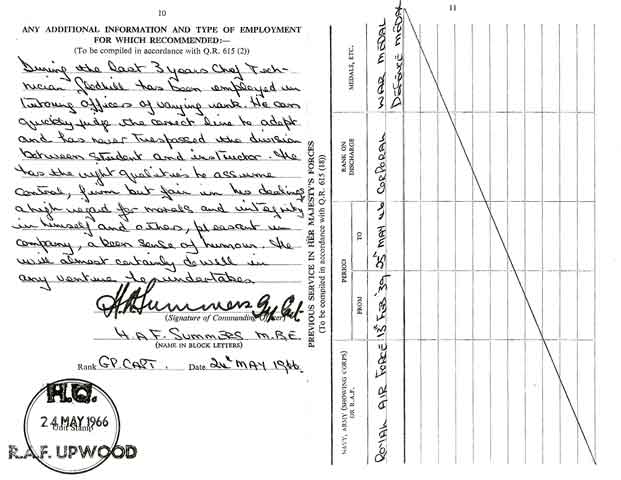 10
ANY ADDITIONAL INFORMATION AND TYPE OF EMPLOYMENT
FOR WHICH RECOMMENDED:—
(To be compiled in accordance with Q.R. 615 (2))
During the last 3 years Chief Tech-
nician has been employed in
tutoring officers of varying rank. He can
quickly judge the correct line to adopt
and has never trespassed the division
between student and instructor. He
has the right qualities to assume
control, firm but fair in his dealings
a high regard for morals and integrity
in himself and others, pleasant in
company, a keen sense of humour. He
will almost certainly do well in
any venture he undertakes
H A Summers Gp Capt.
(Signature of Commanding Officer)
H.A.F. SUMMERS M.B.E.
(NAME IN BLOCK LETTERS)
Rank GP. CAPT. Date 24th MAY 1966.
H.Q.
24 MAY 1966
Unit Stamp
R.A.F. UPWOOD
11
PREVIOUS SERVICE IN HER MAJESTY'S FORCES
(To be compiled in accordance with Q.R. 615 (18))
NAVY, ARMY (SHOWING CORPS) OR R.A.F.
PERIOD
FROM
TO
RANK ON DISCHARGE
MEDALS, ETC.
ROYAL AIR FORCE 1st FEB '39 25th MAY 46 CORPORAL WAR MEDAL
DEFENCE MEDAL